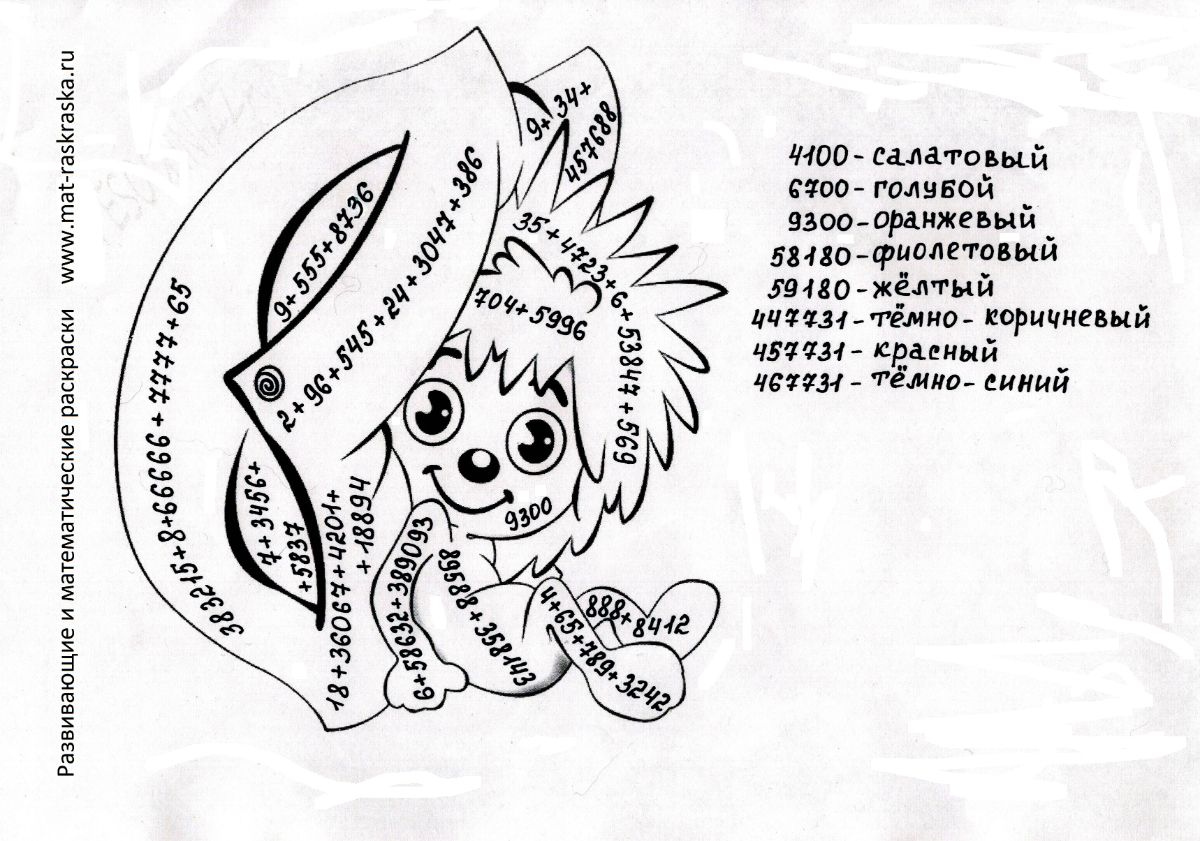 Развивающие и математические раскраски www.mat-raskraska.ru
383215+8+66666+7777+65
9+555+8736
2+96+545+24+3047+386
7+3456+
+5837
18+36067+4201+
+18894
9+34+
457688
35+4723+6+53847+569
704+5996
9300
6+58632+389093
89588+358143
4+65+789+3242
888+8412
4100-салатовый
6700-голубой
9300-оранжевый
58180-фиолетовый
59180-жёлтый
447731-тёмно-коричневый
457731-красный
467731-тёмно-синий